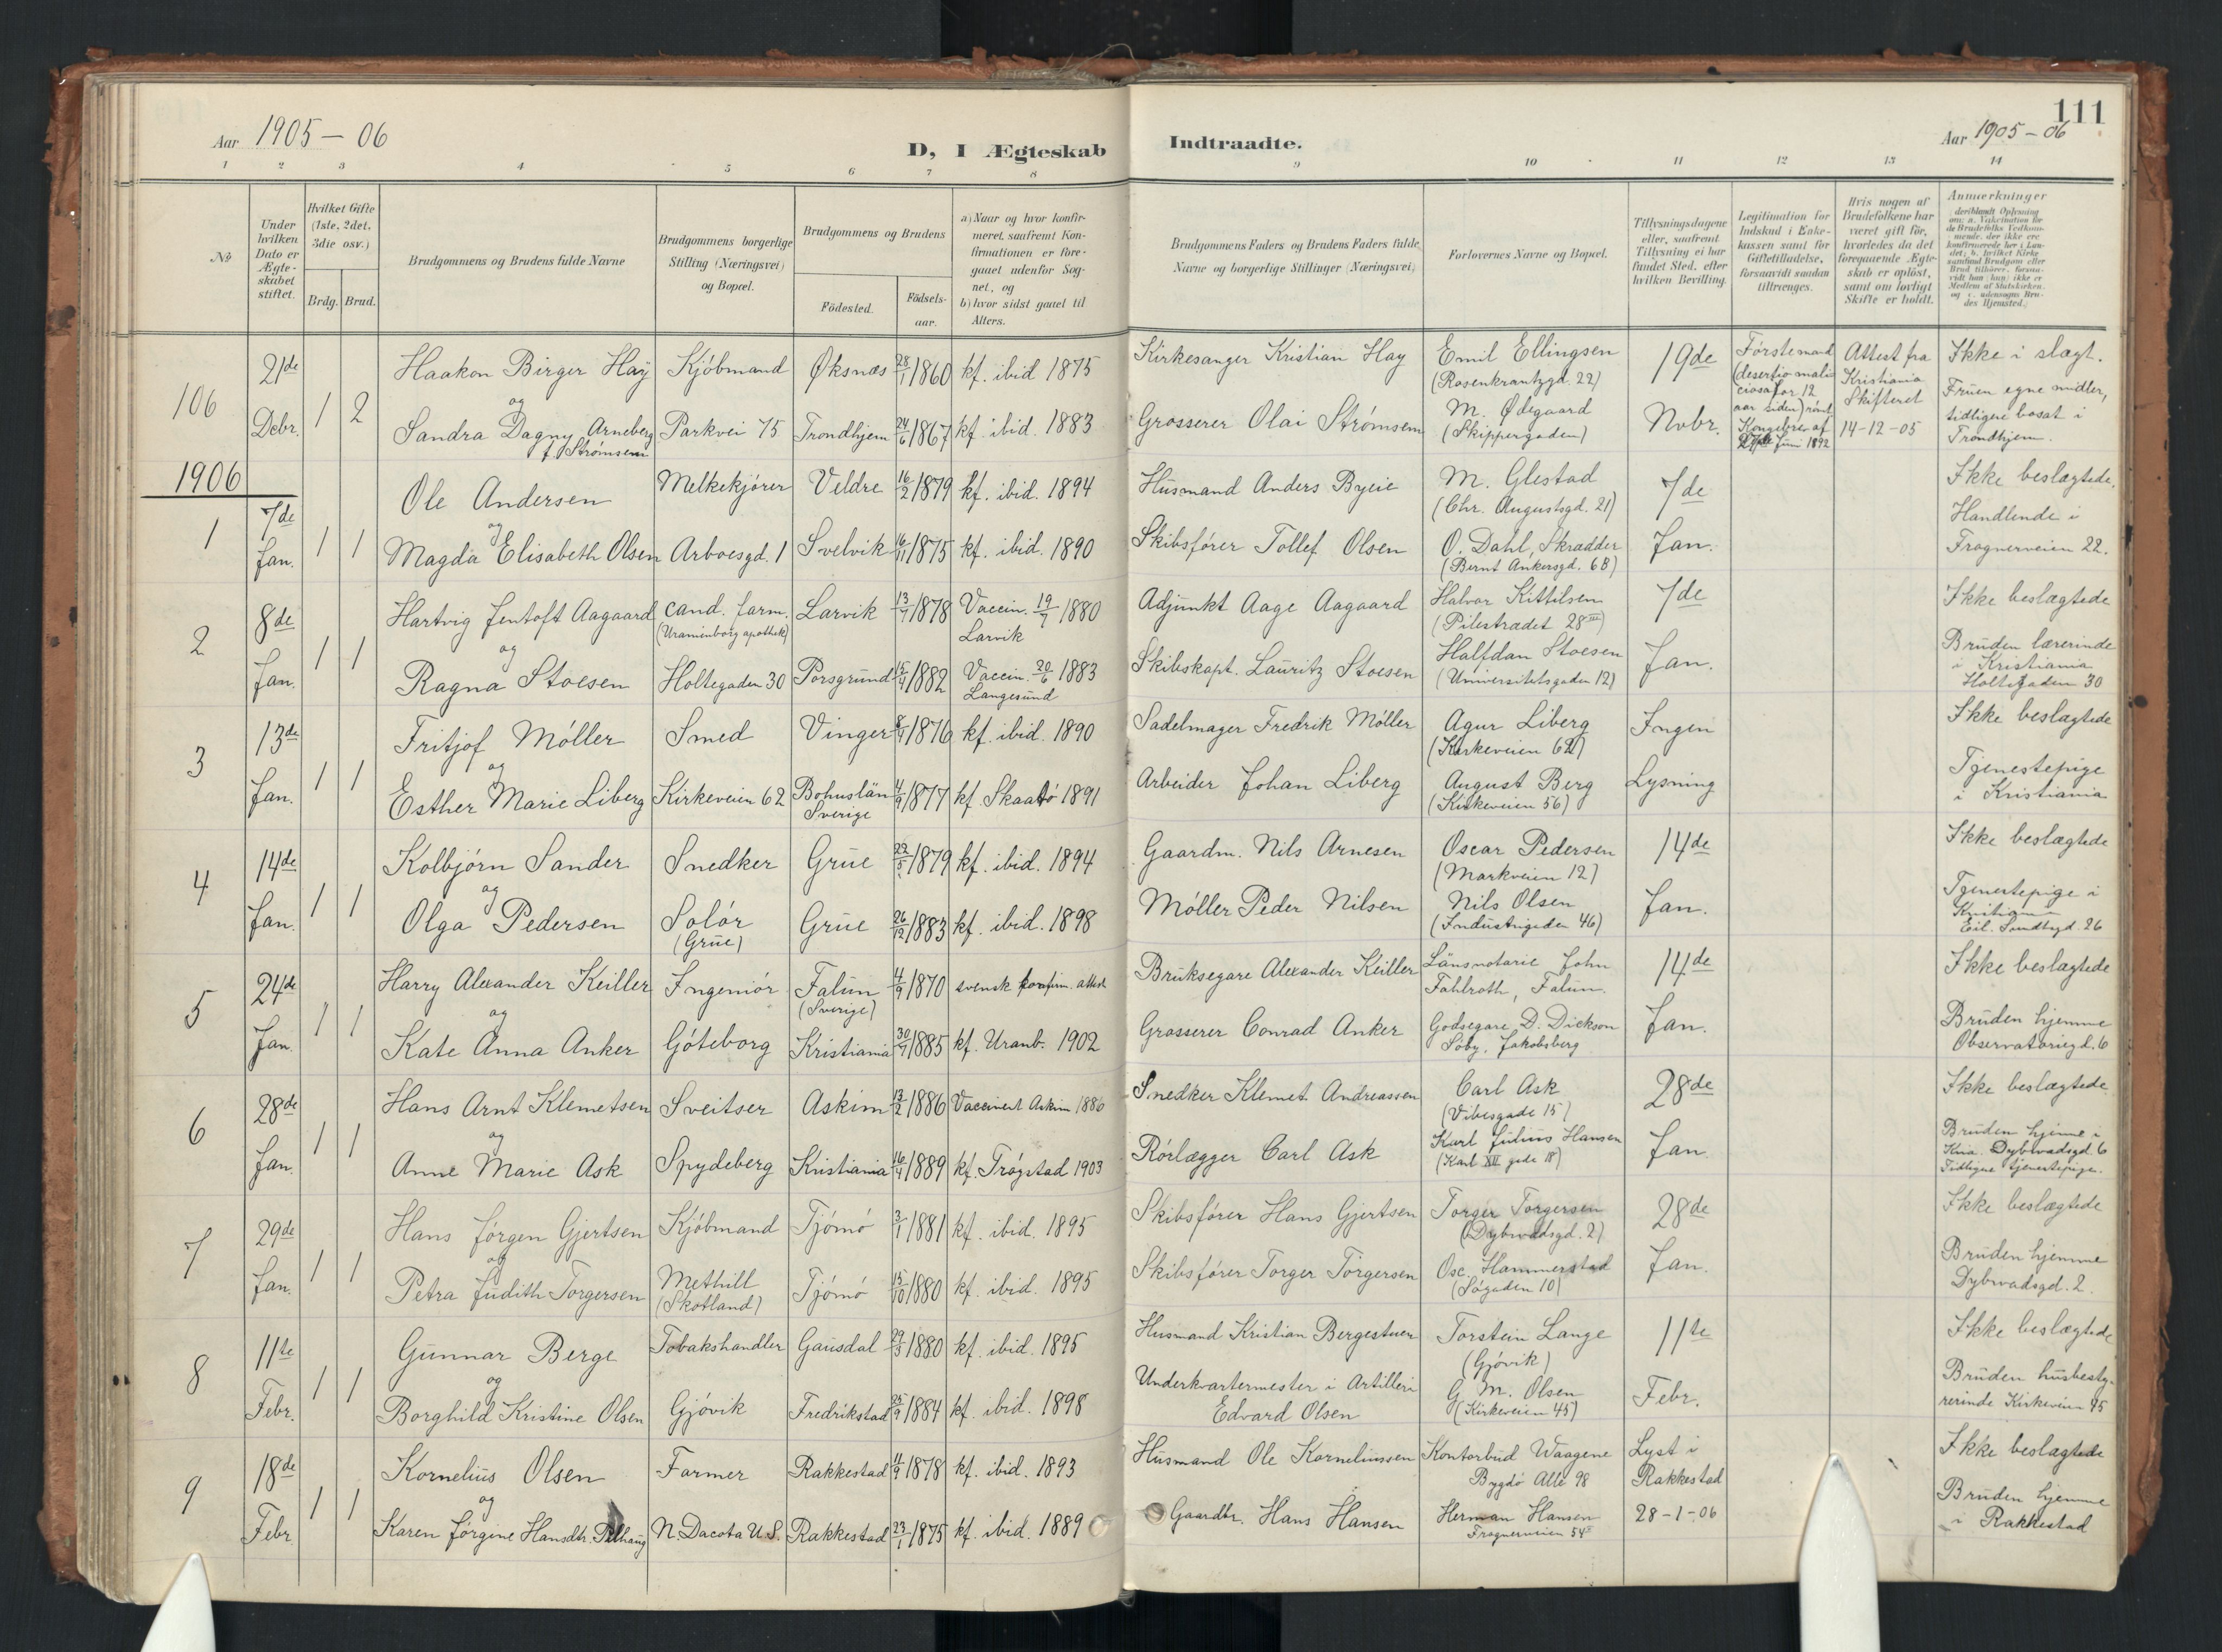 111
Aar 1905 – 06
D, I Ægteskab Indtraadte.
Aar 1905 – 06
1 2 3 4 5 6 7 8 9 10 11 12 13 14
No
Under hvilken Dato er Ægteskabet stiftet.
Hvilket Gifte (1ste, 2det, 3die osv.)
Brdg. Brud.
Brudgommens og Brudens fulde Navne
Brudgommens borgerlige Stilling (Næringsvei) og Bopæl.
Brudgommens og Brudens
Födested.
Födselsaar.
a) Naar og hvor konfirmeret, saafremt Konfirmationen er foregaaet udenfor Sognet, og
b) hvor sidst gaaet til Alters.
Brudgommens Faders og Brudens Faders fulde Navne og borgerlige Stillinger (Næringsvei)
Forlovernes Navne og Bopæl.
Tillysningsdagene eller, saafremt Tillysning ei har fundet Sted, efter hvilken Bevilling.
Legitimation for Indskud i Enkekassen samt for Giftetilladelse, forsaavidt saadan tiltrænges.
Hvis nogen af Brudefolkene har været gift før, hvorledes da det foregaaende Ægteskab er oplöst, samt om lovligt Skifte er holdt.
Anmærkninger
106 21de Debr. 1 2
Haakon Birger Haÿ Kjöbmand Øksnæs 28/1 1860 kf. ibid 1875
og
Sandra Dagny Arneberg f. Strømsem Parkvei 75 Trondhjem 24/6 1867 kf. ibid. 1883
Kirkesanger Kristian Hay Emil Ellingsen (Rosenkrantzgd. 22) 19de
Grosserer Olai Strømsem M. Ødegaard (Skippergaden) Nvbr.
Förstemand (desertio malicirosa for 12 aar siden) Kongebrev af Juni 1892
Attest fra Kristiania Skifteret 14-12-05
Ikke i slægt. Fruen egne midler, tidligere bosat i Trondhjem.
1906
1 7de Jan. 1 1
Ole Andersen Melkekjörer Veldre 16/2 1879 kf. ibid. 1894
og
Magda Elisabeth Olsen Arboesgd. 1 Svelvik 16/11 1875 kf. ibid. 1890
Husmand Anders Byeie M. Glestad (Chr. Augustsgd. 21) 7de
Skibsförer Tollef Olsen O. Dahl, Skrædder (Bernt Ankersgd. 6B) Jan.
Ikke beslægtede. Handlende i Frognerveien 22.
2 8de Jan. 1 1
Hartvig Jentoft Aagaard cand. farm. (Uranienborg apothek) Larvik 13/7 1878 Vaccin. 19/7 1880 Larvik
og
Ragna Stoesen Holtegaden 30 Porsgrund 15/4 1882 Vaccin. 20/6 1883 Langesund
Adjunkt Aage Aagaard Halvor Kittilsen (Pilestrædet 28III) 7de
Skibskapt. Lauritz Stoesen Halfdan Stoesen (Universitetsgaden 12) Jan.
Ikke beslægtede Bruden lærerinde i Kristiania Holtegaden 30
3 13de Jan. 1 1
Fritjof Möller Smed Vinger 8/4 1876 kf. ibid. 1890
og
Esther Marie Liberg Kirkeveien 62 Bohuslän Sverige 4/9 1877 kf. Skaatö 1891
Sadelmager Fredrik Möller Agur Liberg (Kirkeveien 62) Ingen
Arbeider Johan Liberg August Berg (Kirkeveien 56) Lysning
Ikke beslægtede Tjenestepige i Kristiania
4 14de Jan. 1 1
Kolbjörn Sander Snedker Grue 22/5 1879 kf. ibid. 1894
og
Olga Pedersen Solör (Grue) Grue 26/12 1883 kf. ibid. 1898
Gaardm. Nils Arnesen Oscar Pedersen (Markveien 12) 14de
Möller Peder Nilsen Nils Olsen (Industrigaden 46) Jan.
Ikke beslægtede Tjenestepige i Kristiania Eil. Sundtsgd. 26
5 24de Jan. 1 1
Harry Alexander Keiller Ingeniör Falun (Sverige) 4/9 1870 svensk konfirm. attest
og
Kate Anna Anker Göteborg Kristiania 30/7 1885 kf. Uranb. 1902
Bruksegare Alexander Keiller Länsnotarie John Fahlroth, Falun. 14de
Grosserer Conrad Anker Godsegare D. Dickson Söby, Jakobsberg Jan.
Ikke beslægtede Bruden hjemme Observatoriegd. 6
6 28de Jan. 1 1
Hans Arnt Klemetsen Sveitser Askim 13/2 1886 Vaccineret Askim 1886
og
Anne Marie Ask Spydeberg Kristiania 16/4 1889 kf. Trögstad 1903
Snedker Klemet Andreassen Carl Ask (Vibesgade 15) 28de
Rörlægger Carl Ask Karl Julius Hansen (Karl XII gade 18) Jan
Ikke beslægtede Bruden hjemme i Kria. Dybwadsgd 6 Tidligere tjenestepige.
7 29de Jan. 1 1
Hans Jörgen Gjertsen Kjöbmand Tjömö 3/1 1881 kf. ibid. 1895
og
Petra Judith Torgersen Methill (Skotland) Tjömö 15/10 1880 kf. ibid. 1895
Skibsförer Hans Gjertsen Torger Torgersen (Dybwadsgd. 2) 28de
Skibsförer Torger Torgersen Osc. Hammerstad (Sögaden 10) Jan.
Ikke beslægtede Bruden hjemme Dybwadsgd. 2.
8 11te Febr. 1 1
Gunnar Berge Tobakshandler Gausdal 29/3 1880 kf. ibid. 1895
og
Borghild Kristine Olsen Gjövik Fredrikstad 25/9 1884 kf. ibid. 1898
Husmand Kristian Bergestuen Torstein Lange (Gjövik) 11te
Underkvartermester i Artilleri Edvard Olsen G. M. Olsen (Kirkeveien 45) Febr.
Ikke beslægtede Bruden husbestyrerinde Kirkeveien 45
9 18de Febr 1 1
Kornelius Olsen Farmer Rakkestad 11/9 1878 kf. ibid. 1893
og
Karen Jörgine Hansdtr. N. Dacota U.S. Rakkestad 23/1 1875 kf. ibid. 1889
Husmand Ole Korneliussen Kontorbud Waagene Bygdö Alle 98 Lyst i Rakkestad
Gaardbr. Hans Hansen Herman Hansen Frognerveien 54 28-1-06
Ikke beslægtede Bruden hjemme i Rakkestad